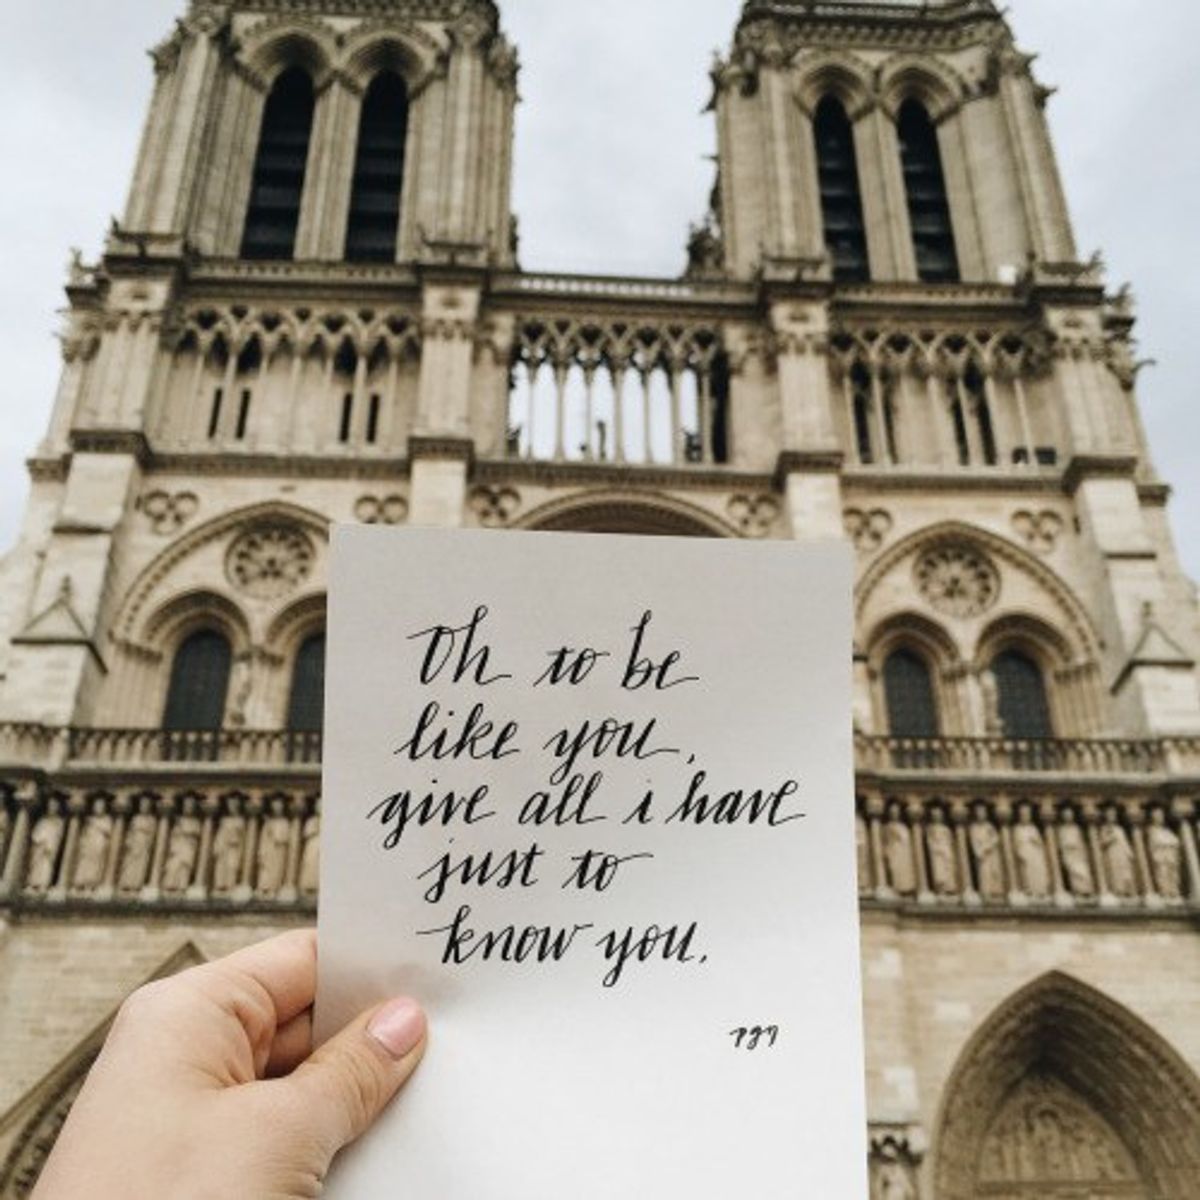 Oh to be
like you,
give all i have
just to
know you.
pgn